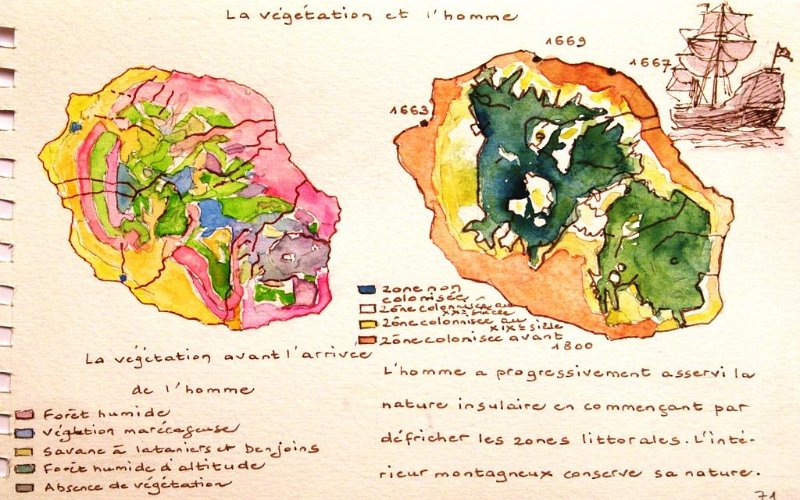 La végétation et l'homme
1669
1667
1663
zone non
colonisée
zône colonisée au
XXe siècle
zône colonisée au
XIXe siècle
zône colonisée avant
1800
La végétation avant l'arrivée
de l'homme
Forêt humide
Végétation marécageuse
Savane à lataniers et benjoins
Forêt humide d'altitude
Absence de végétation
L'homme a progressivement asservi la
nature insulaire en commençant par
défricher les zones littorales. L'inté-
rieur montagneux conserve sa nature.
71